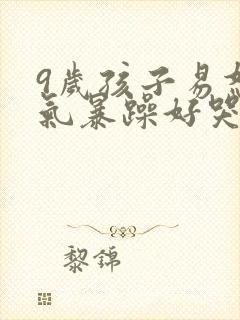 9歲孩子易怒
氣暴躁好哭
黎錦